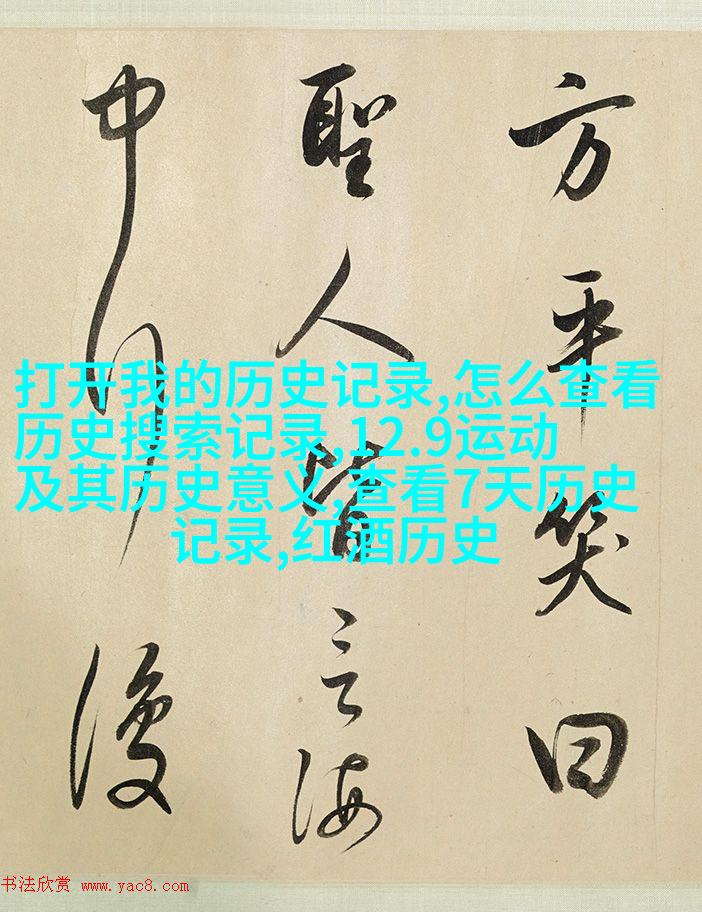 方平笑曰
聖人皆言海
中行復
打开我的历史记录,怎么查看
历史搜索记录,12.9运动
及其历史意义,查看7天历史
记录,红酒历史
书法欣赏 www.yac8.com